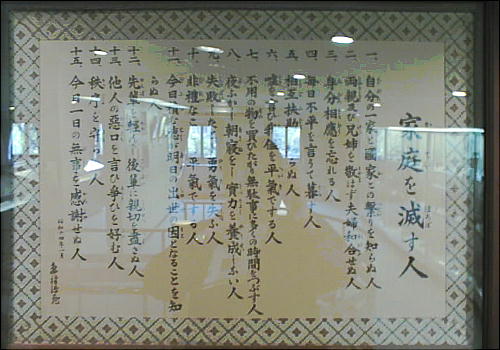 家庭を滅す人
一、自分一家と國家との繋りを知らぬ人
二、両親及び兄姉を敬はず夫婦和合せぬ人
三、身分相應を忘れる人
四、毎日不平を言うて暮す人
五、相互扶助を知らぬ人
六、嘘を言ひ不信を平氣でする人
七、不用の物を買ひたがり無駄事に多くの時間をつぶす人
八、夜ふかし朝寝をし實力を養成しない人
九、失敗したら勇氣を失ふ人
十、非禮なことを平氣でする人
十一、今日情な悪は明日の出世の因となることを知
らぬ人
十二、先輩を軽んじ後輩に親切を盡さぬ人
十三、他人の惡口を言ひ争を好む人
十四、秩序を守らぬ人
十五、今日一日の無事を感謝せぬ人